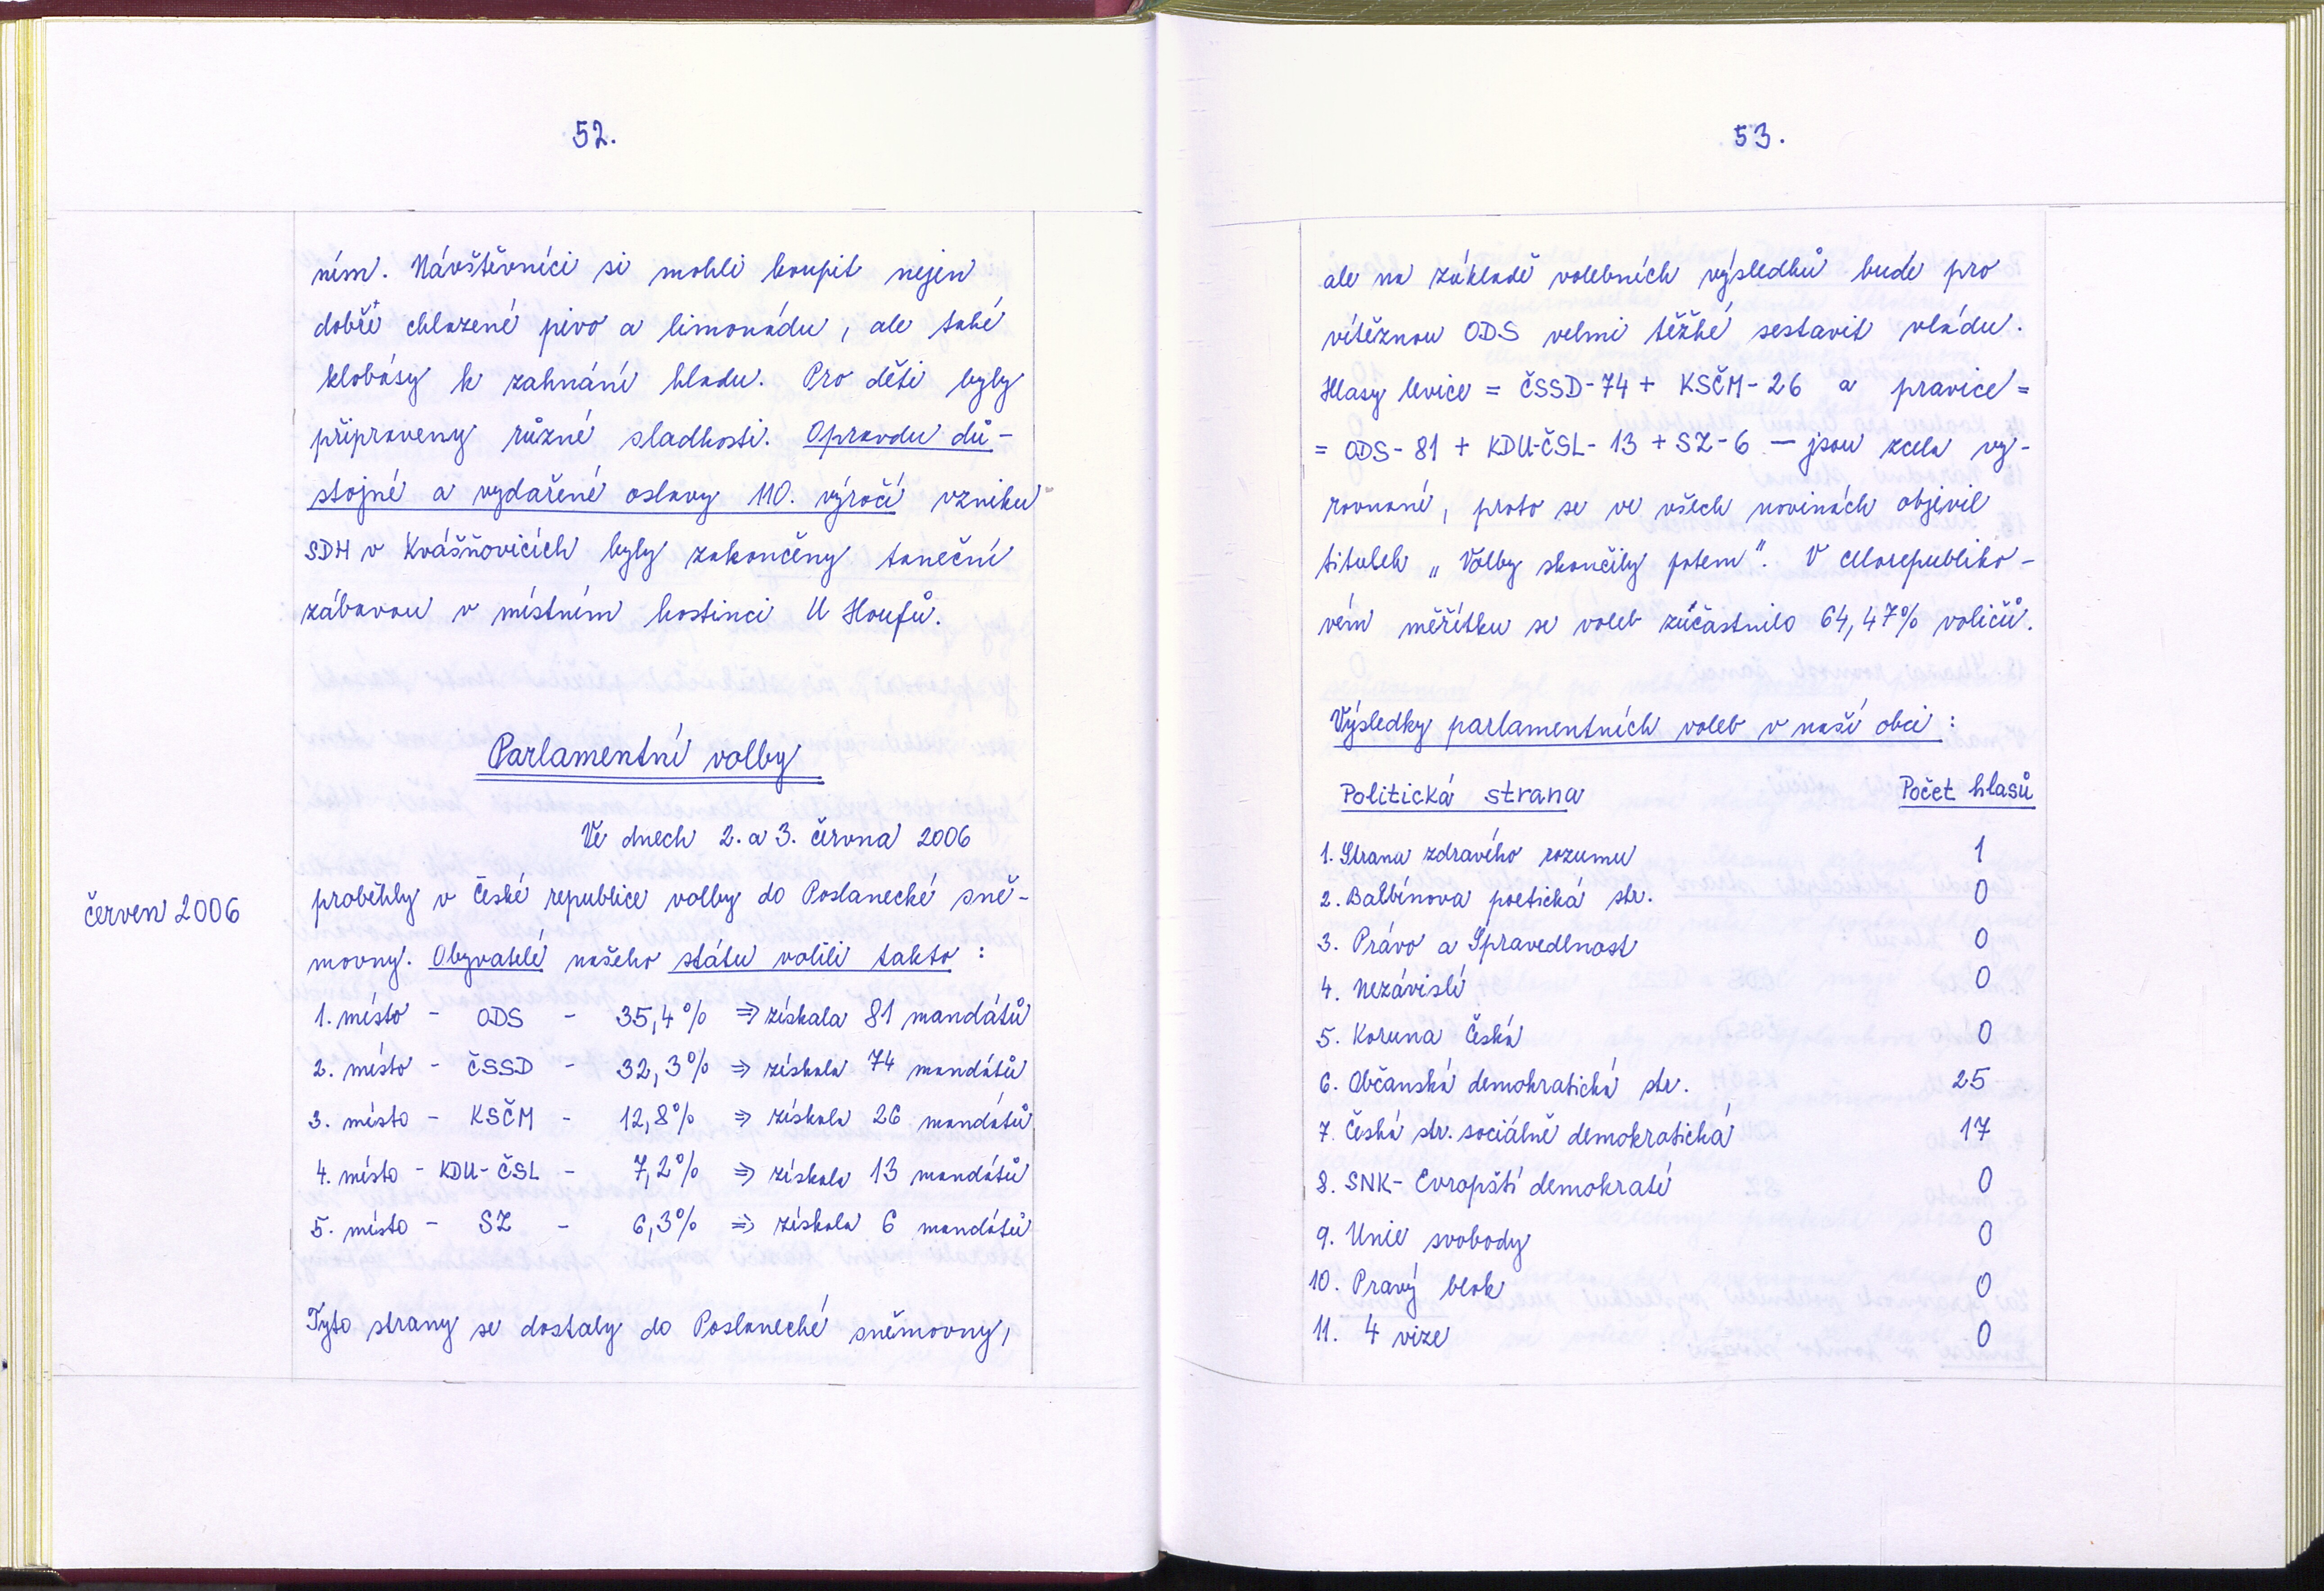 52.
ním. Návštěvníci si mohli koupit nejen
dobře chlazené pivo a limonádu, ale také
klobásy k zahnání hladu. Pro děti byly
připraveny různé sladkosti. Opravdu dů-
stojné a vydařené oslavy 110. výročí vzniku
SDH v Kvášňovicích byly zakončeny taneční
zábavou v místním hostinci U Houfů.
Parlamentní volby
Ve dnech 2. a 3. června 2006
červen 2006
proběhly v České republice volby do Poslanecké sně-
movny. Obyvatelé našeho státu volili takto :
1. místo - ODS - 35,4% ⇒ získala 81 mandátů
2. místo - ČSSD - 32,3% ⇒ získala 74 mandátů
3. místo - KSČM - 12,8% ⇒ získala 26 mandátů
4. místo - KDU-ČSL - 7,2% ⇒ získala 13 mandátů
5. místo - SZ - 6,3% ⇒ získala 6 mandátů
Tyto strany se dostaly do Poslanecké sněmovny,
53.
ale na základě volebních výsledků bude pro
vítěznou ODS velmi těžké sestavit vládu.
Hlasy levice = ČSSD-74 + KSČM-26 a pravice =
= ODS-81 + KDU-ČSL-13 + SZ-6 — jsou zcela vy-
rovnané, proto se ve všech novinách objevil
titulek „Volby skončily patem". V celorepubliko-
vém měřítku se voleb zúčastnilo 64,47% voličů.
Výsledky parlamentních voleb v naší obci :
Politická strana Počet hlasů
1. Strana zdravého rozumu 1
2. Balbínova poetická str. 0
3. Právo a Spravedlnost 0
4. Nezávislí 0
5. Koruna Česká 0
6. Občanská demokratická str. 25
7. Česká str. sociálně demokratická 17
8. SNK- Evropští demokraté 0
9. Unie svobody 0
10. Pravý blok 0
11. 4 vize 0